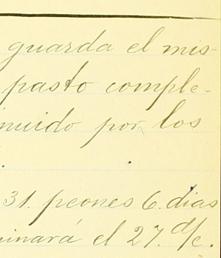 guarda el mis-
pasto comple-
nuido por los
.
31. peones 6. dias
inará el 27. d/c.